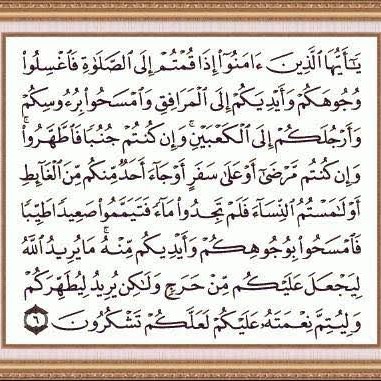 يَـٰٓأَيُّهَا ٱلَّذِينَ ءَامَنُوٓا۟ إِذَا قُمْتُمْ إِلَى ٱلصَّلَوٰةِ فَٱغْسِلُوا۟
وُجُوهَكُمْ وَأَيْدِيَكُمْ إِلَى ٱلْمَرَافِقِ وَٱمْسَحُوا۟ بِرُءُوسِكُمْ
وَأَرْجُلَكُمْ إِلَى ٱلْكَعْبَيْنِ ۚ وَإِن كُنتُمْ جُنُبًا فَٱطَّهَّرُوا۟ ۚ
وَإِن كُنتُم مَّرْضَىٰٓ أَوْ عَلَىٰ سَفَرٍ أَوْ جَآءَ أَحَدٌ مِّنكُم مِّنَ ٱلْغَآئِطِ
أَوْ لَـٰمَسْتُمُ ٱلنِّسَآءَ فَلَمْ تَجِدُوا۟ مَآءً فَتَيَمَّمُوا۟ صَعِيدًا طَيِّبًا
فَٱمْسَحُوا۟ بِوُجُوهِكُمْ وَأَيْدِيكُم مِّنْهُ ۚ مَا يُرِيدُ ٱللَّهُ
لِيَجْعَلَ عَلَيْكُم مِّنْ حَرَجٍ وَلَـٰكِن يُرِيدُ لِيُطَهِّرَكُمْ
وَلِيُتِمَّ نِعْمَتَهُۥ عَلَيْكُمْ لَعَلَّكُمْ تَشْكُرُونَ ٦